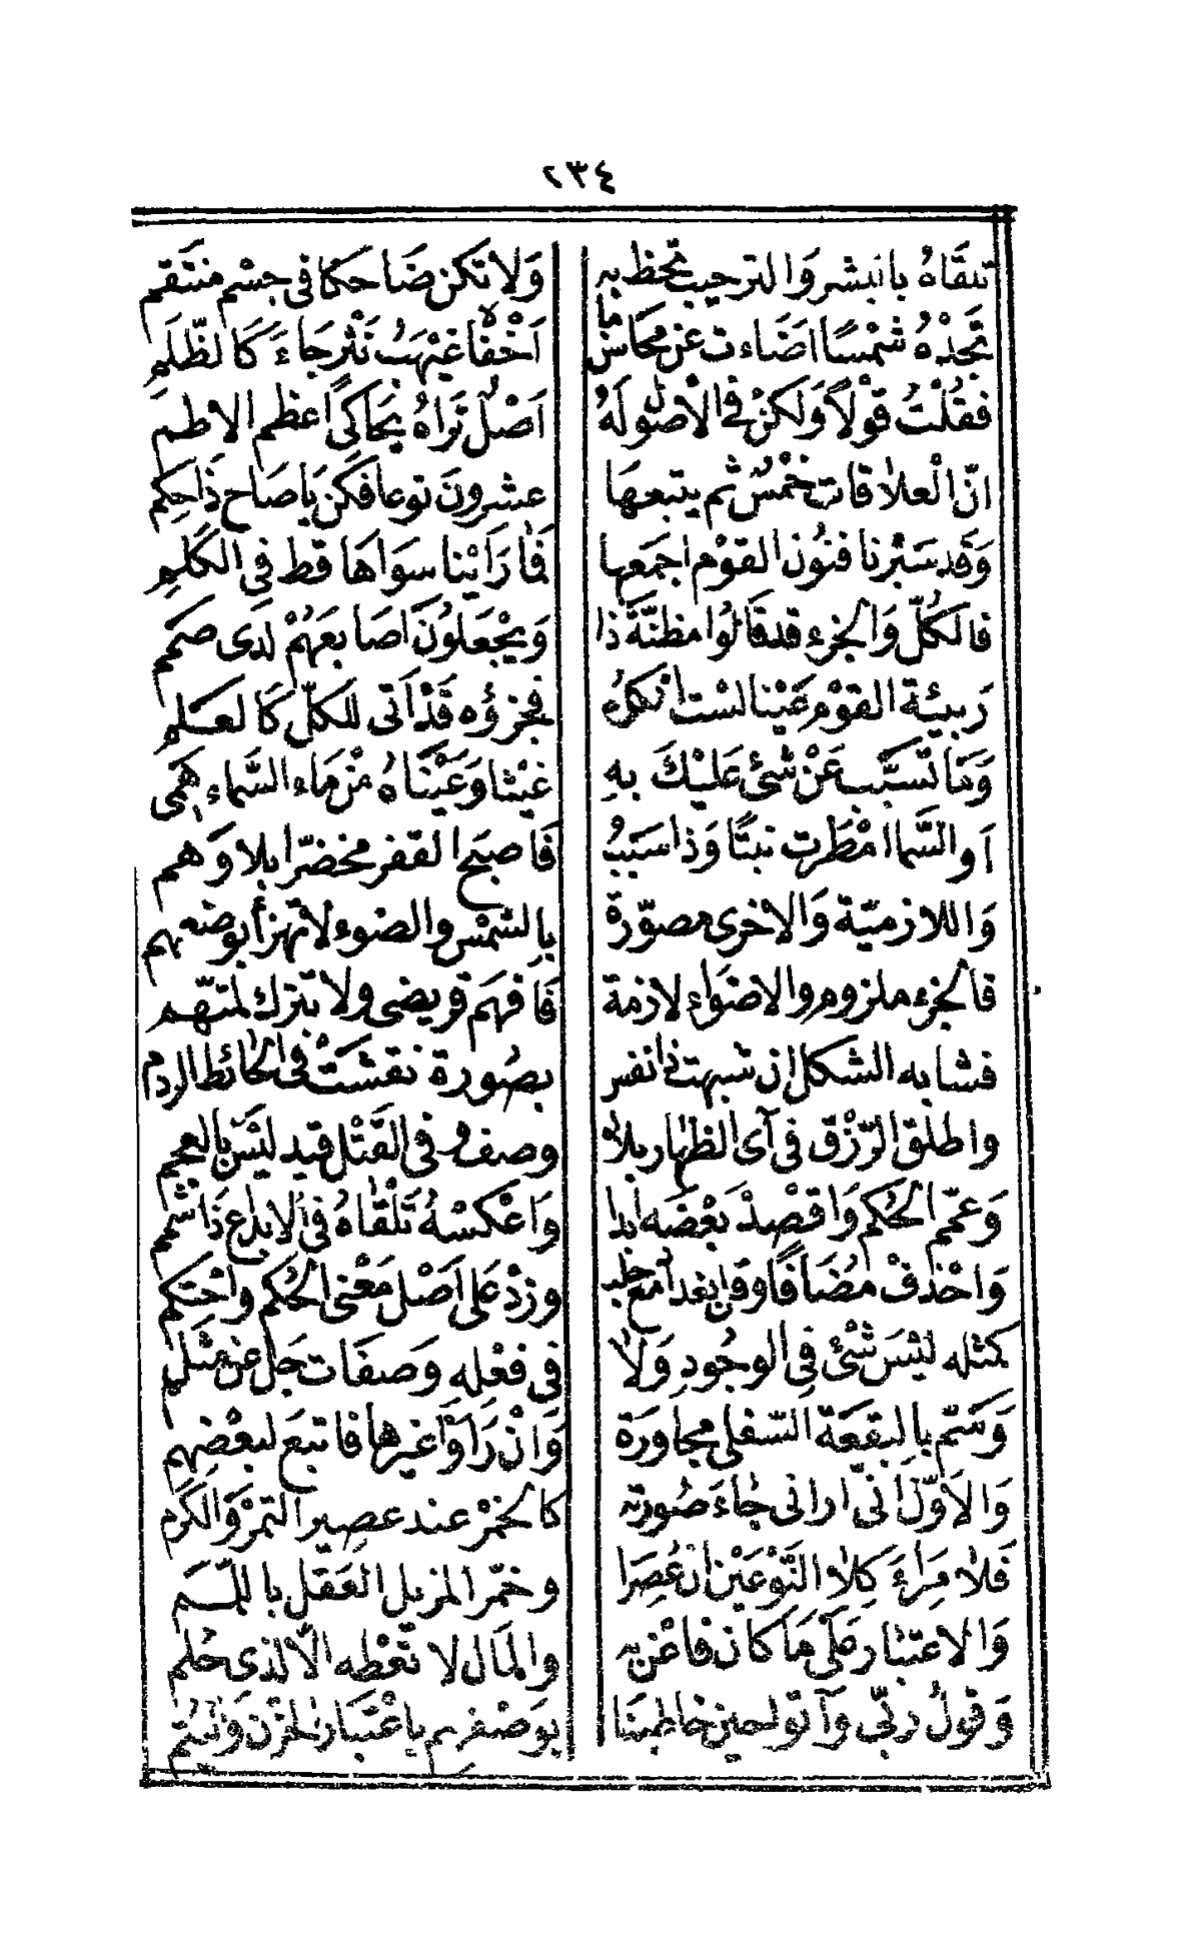 ٢٣٤
تلقاهُ بالبشر وَالترحيب تحظ به وَلا تكن ضَاحكا فى جسْم منتَقم
تجدْهُ شمْسًا اضَاءت عن محَاسن ما اَخْفاهُ غيْهَبُ نَثْر جَاءَ كَالظّلَم
فقلْتُ قوْلاً وَلكنْ فى الاصول لَهُ اَصْلٌ تَرَاهُ يُحَاكى اعظم الاطم
انّ الْعلاقات خَمْسٌ ثم يتبعهَا عشرونَ نوعا فكن يَا صَاح ذَا حِكم
وَقد سَبَرْنا فنُون القوْم اجمَعها فمَا رَايْنا سوَاهَا قط فى الكَلم
فالكُلّ وَالجزء قد قَالوُا مظنّةَ ذا وَيجْعَلوُنَ اَصَابعَهُمْ لدَى صمَم
رَبيئة القوْم عَيْنا لسْت انكره فجزؤه قَدْ اَتى للكلّ كَالعَلم
وَمَا تسَبَّب عَنْ شئ عَليْكَ بهِ غيْثا وَعَيْنَاهُ منْ مَاء السَّماء هَمى
اَو السَّما امْطَرت نبتًا وَذا سَبَبٌ فَاصبَح القفر مخضرّا بلا وَهم
وَاللازميّة وَالاخرى مصوّرة بالشمْس والضوء لا تهزأ بوضعهم
فالجزء ملزوم والاضوَاء لازمة فَافهَم قويضى ولا تترك لمتهم
فشابه الشكل ان شبهت ذا نفس بصُورة نقشَتْ فى الحائط الردم
واطلق الرّزْق فى آى الظهار بلا وصف وفى القَتْل قيد ليْسَ بالعجم
وَعمّم الحُكم وَاقْصِدْ بَعْضَه ابدا وَاعْكسْهُ تَلْقَاهُ فى الابداع ذَا شمم
وَاحْذفْ مُضَافًا وزدْ عَلى اَصْل مَعْنى الحُكم واحْتكم
كمثله ليْسَ شئ فى الوجُودِ وَلا فى فعْلهِ وَصفَات جَل عن مثَل
وَسَمّ بالبقعَة السّفلى مجاورَة وَانْ رَاَوْا غيرهَا فاتبَع لبعْضهم
وَالاَوّل انّى ارانى جَاءَ صُورته كالخمْر عند عصِير التمْر وَالكَرم
فَلا مَرَاءَ كِلا النَّوْعَيْن ان عُصِرَا وخمّر المزيل العَقل باللّمَم
وَالاعتبَار عَلَى مَا كان فاعْن به والمَال لا تعْطه الاّ لذى حلم
وَقولُ ربّى وَآتو لحين خَاطبنَا بوَصْفهم باعْتبَار الحزْن وَاليُتم